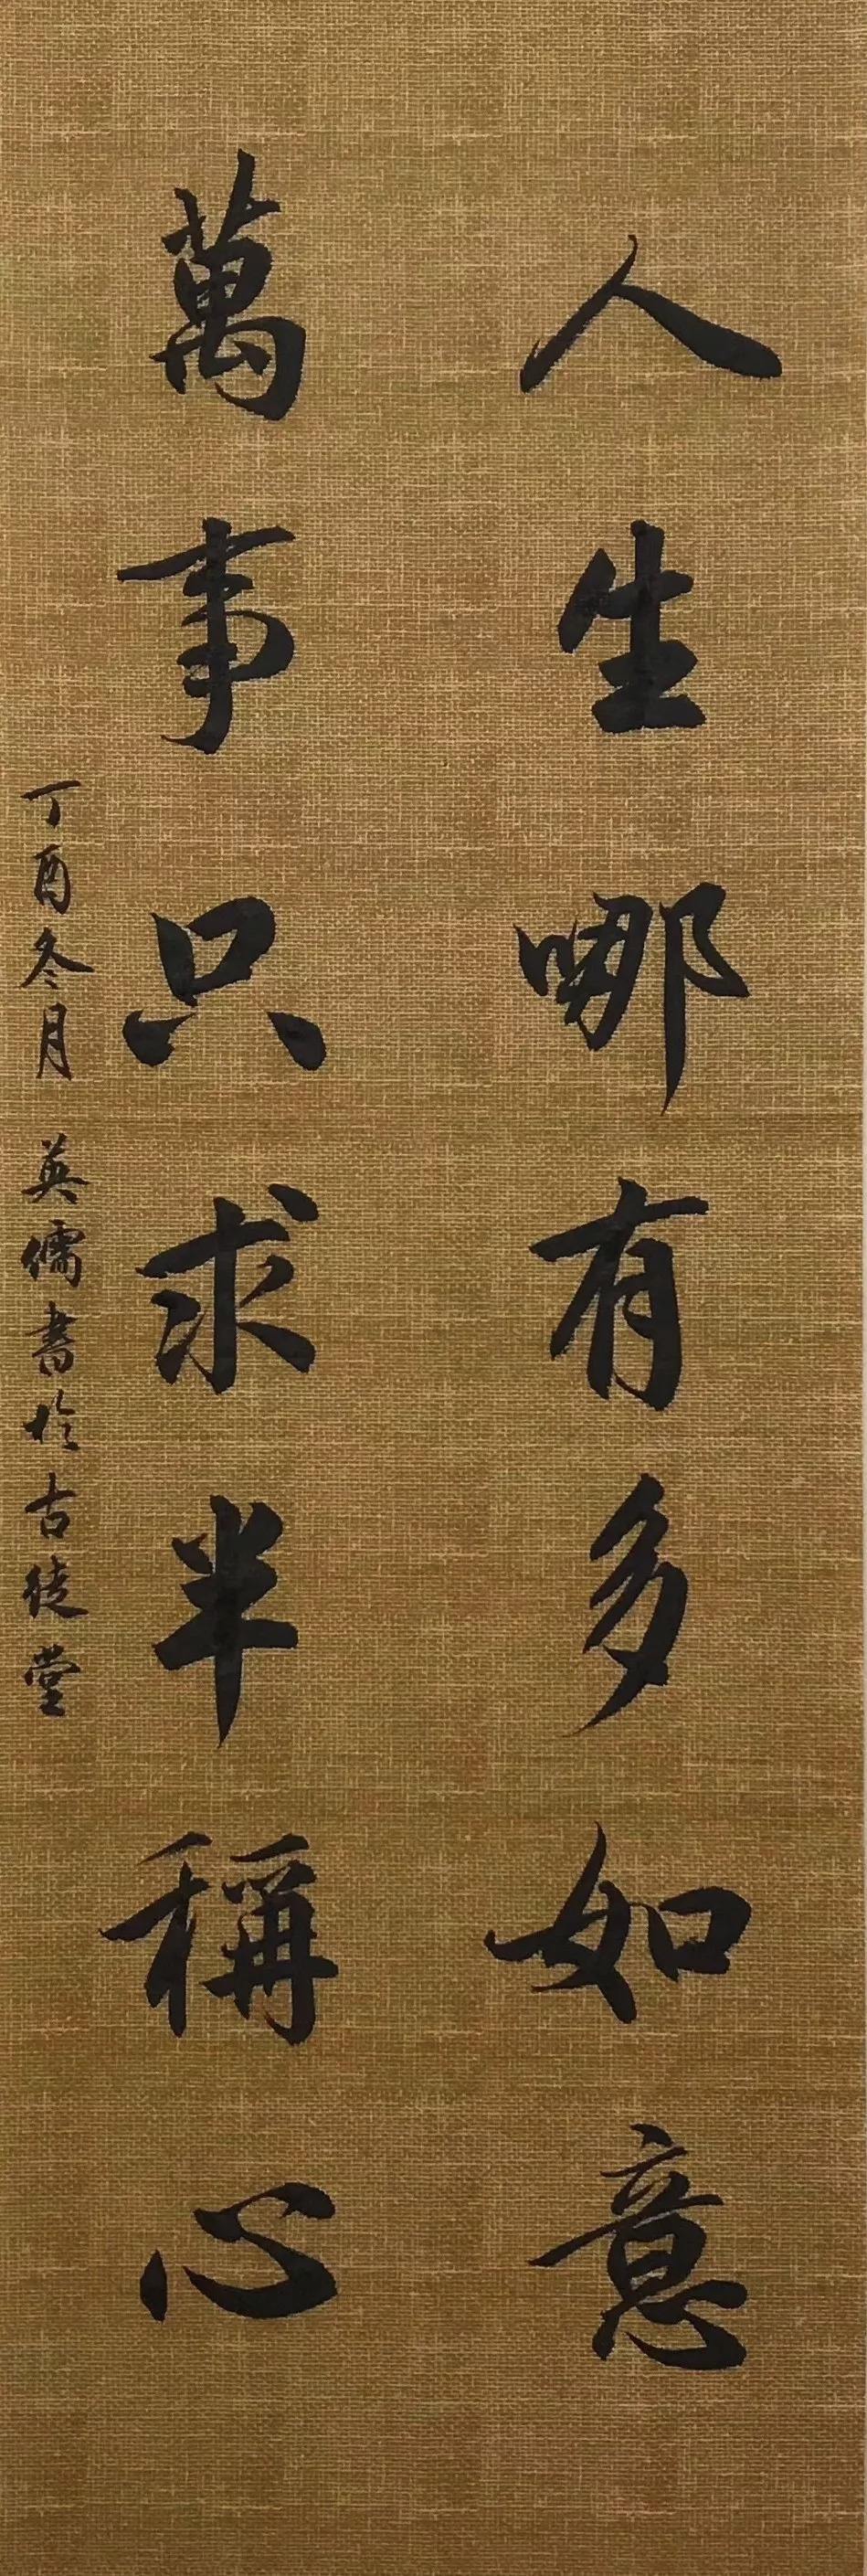 人生哪有多如意
萬事只求半稱心
丁酉冬月 英儒書於古徒堂